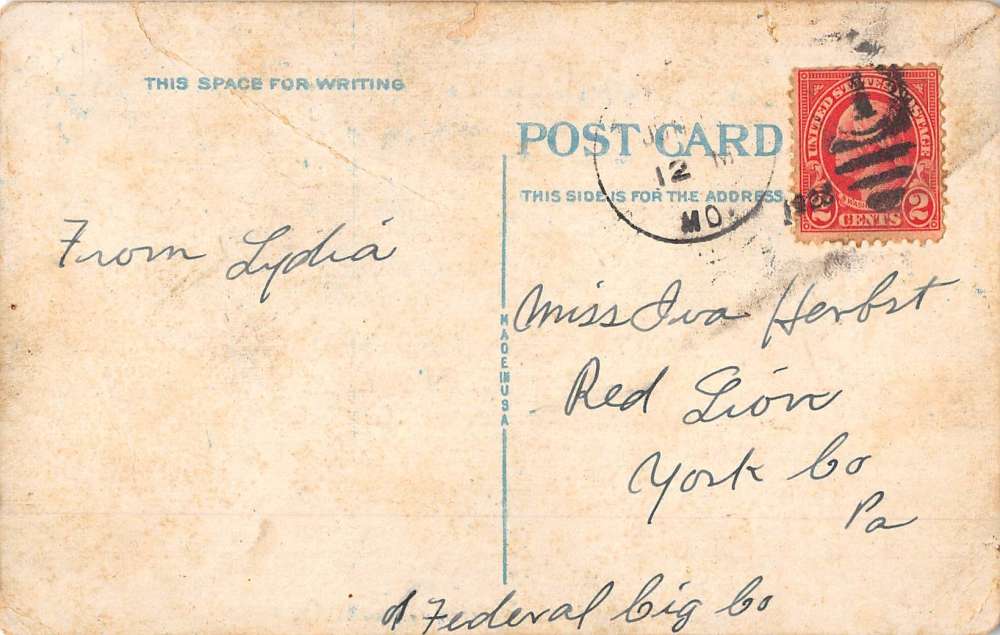 THIS SPACE FOR WRITING
From Lydia
POST CARD
THIS SIDE IS FOR THE ADDRESS
12
MO.
UNITED STATES POSTAGE
2 CENTS 2
1
MADE IN USA
Miss Iva Herbst
Red Lion
York Co
Pa
Federal Cig Co